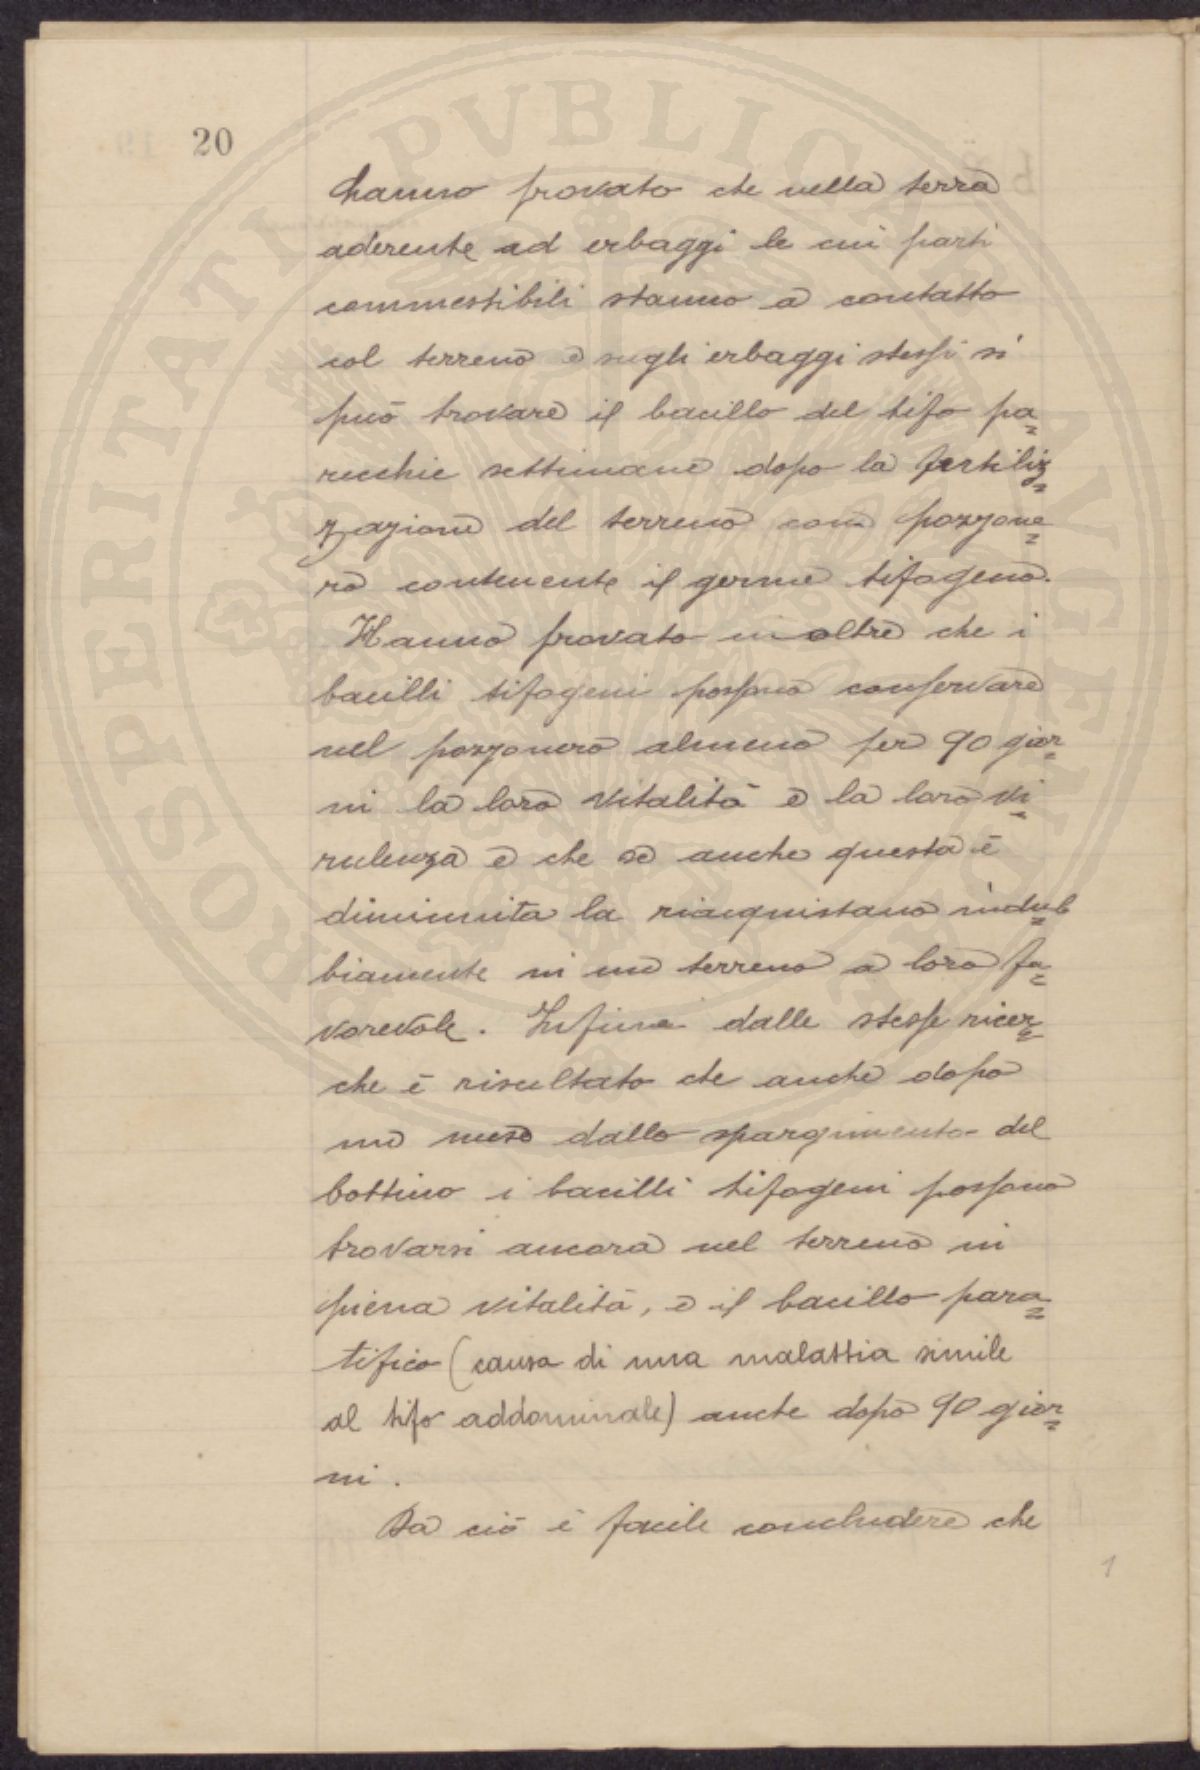 20
hanno provato che nella terra
aderente ad erbaggi le cui parti
commestibili stanno a contatto
col terreno e sugli erbaggi stessi si
può trovare il bacillo del tifo pa=
recchie settimane dopo la fertiliz=
zazione del terreno con pozzone=
ro contenente il germe tifogeno.
Hanno provato inoltre che i
bacilli tifogeni possono conservare
nel pozzonero almeno per 90 gior=
ni la loro vitalità e la loro vi=
rulenza e che se anche questa è
diminuita la riacquistano indub=
biamente in un terreno a loro fa=
vorevole. Infine dalle stesse ricer=
che è risultato che anche dopo
un mese dallo spargimento del
bottino i bacilli tifogeni possono
trovarsi ancora nel terreno in
piena vitalità, e il bacillo para=
tifico (causa di una malattia simile
al tifo addominale) anche dopo 90 gior=
ni.
Da ciò è facile concludere che
1
PROSPERITATI PVBLICAE AVGENDAE